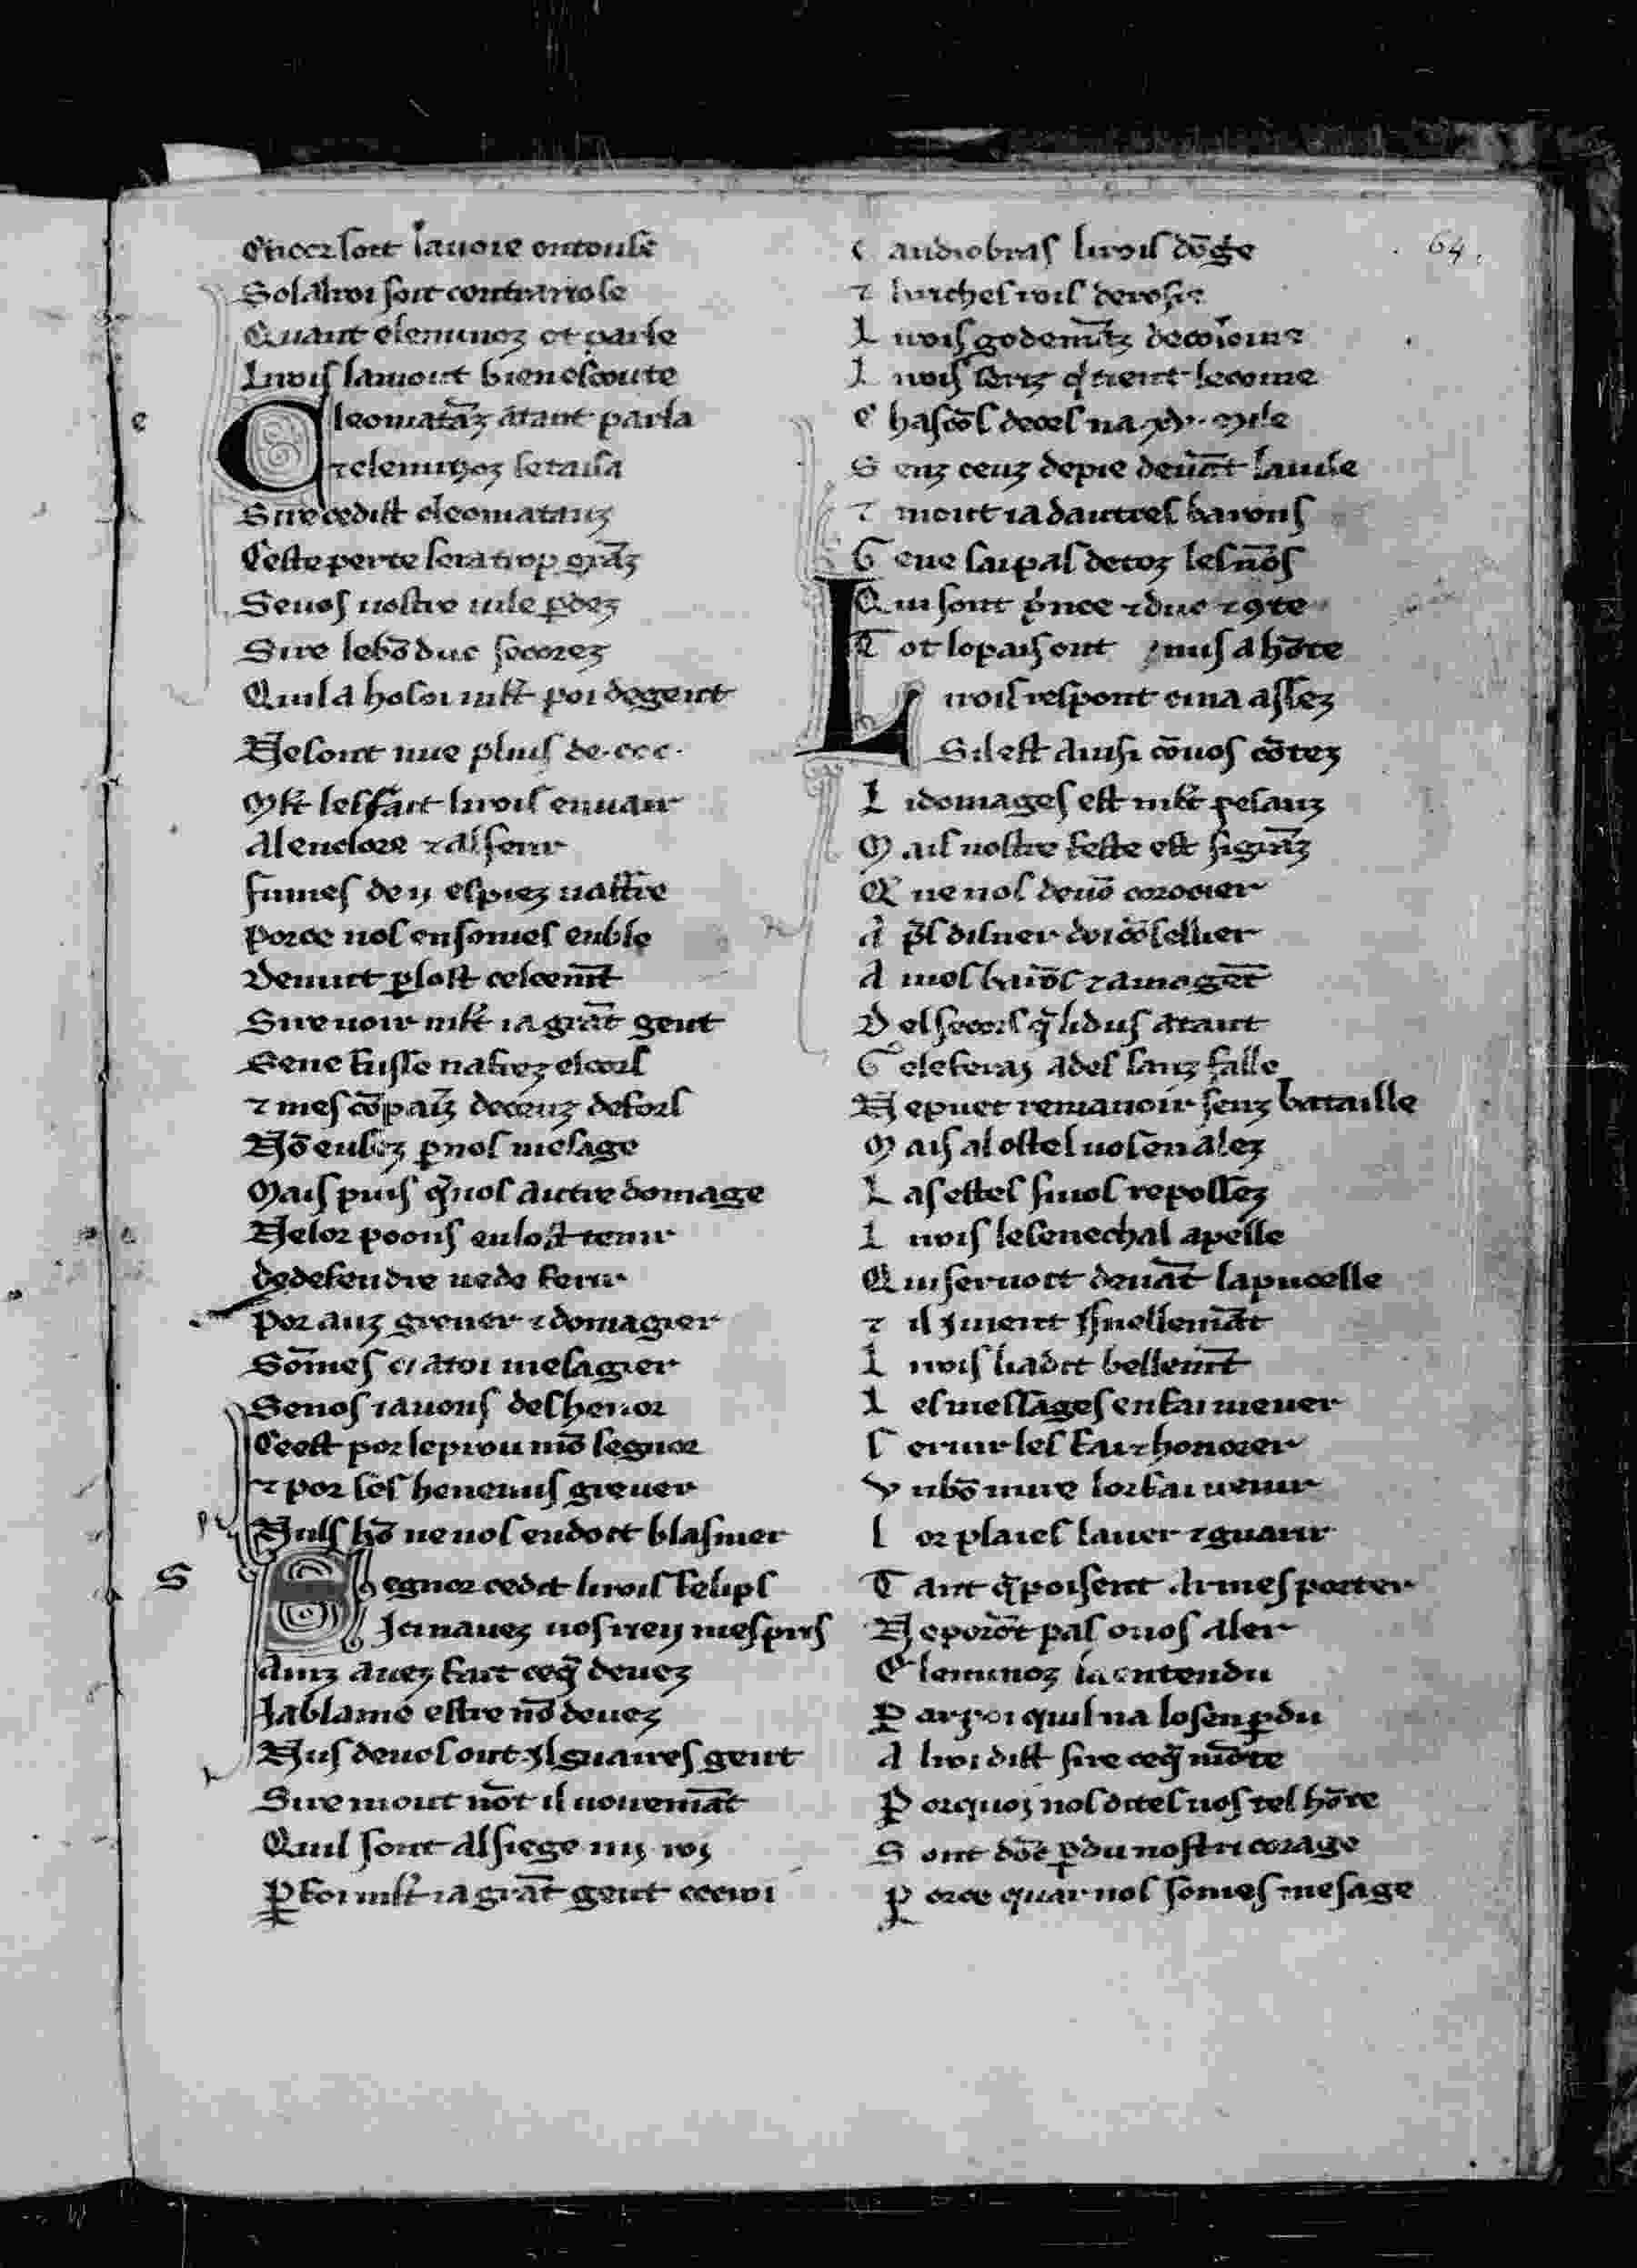 Encor soit sauoie entouse
Sol al roi soit contrariose
Quant cleminoz ot parle
Li rois lamout bien escoute
e
Cleomatãz atant parla
⁊ cleminoz se taisa
Sire ce dist cleomatanz
Ceste perte sera trop grãz
Se uos uostre uile perdez
Sire le bõ duc secorez
Quil a ho soi mlt poi de gent
Ne sont mie pluis de .ccc.
Mlt les fait li rois enuair
Al enclore ⁊ al ferir
fumes de ij espiez
Por ce nos en somes
Venuit p lost celeemt
Sire uoir mlt i a grãt gent
Se ne fusse
⁊ mes cõpaiz de ceuz defors
Nõ eusez p nos mesage
Mais puis q̃ nos autre domage
Ne lor poons en lost tenir
De defendre ne de ferir
Por auz greuer ⁊ domagier
Somes ci a toi mesagier
Se nos i auons deshenor
Ce est por le prou nrõ segnor
⁊ por ses henemis greuer
Nuls hõ ne nos en doit blasmer
S
Segnor ce dit li rois felips
Ici nauez uos rien mespris
Ainz auez fait ceq̃ deuez
Ia blame estre nõ deuez
Nus de uos ont il guaires gent
Sire mout nõt il uoiremãt
Quil sont al siege iiij roi
P foi mlt i a grãt gent
64.
Candiobras li rois
⁊
Li rois godemãtz
Li rois q̃ tient
Chascõs de cels na .xv. mile
Senz ceuz de pie deuãt la uile
⁊ mout i a dautres barons
Gene sai pas de toz les nõs
Qui sont p̃nce ⁊ duc ⁊ 9te
Tot lo pais ont mis a hõte
Li rois respont ci na assez
Sil est ainsi cõ uos cõtez
Li domages est mlt pesanz
Mais nostre feste est si grãz
Q̃ ne nos deuõ corocier
A p̃s disner doi cõsellier
A mes barõs ⁊ a ma gẽt
Del secors q̃ li dus atant
Gele ferai ades sanz falle
Ne puet remanoir senz bataille
Mais al ostel uos en alez
Las estes si uos repossez
Li rois le senechal apelle
Qui seruoit deuãt la pucelle
⁊ il i uient isnellemãt
Li rois li a dit bellemt
Les messages en fai mener
Seruir les fai ⁊ honorer
Vn bõ mire lor fai uenir
Lor plaies lauer ⁊ guarir
Tant q̃ poisent armes porter
Ne porõt pas o uos aler
Cleminoz la entendu
Par poi quil na lo sen pdu
Al roi dist sire ceq̃ mõte
Por quoi nos dites uos tel hõte
Sont dõc pdu nostri corage
Por ce quar nos somes mesage